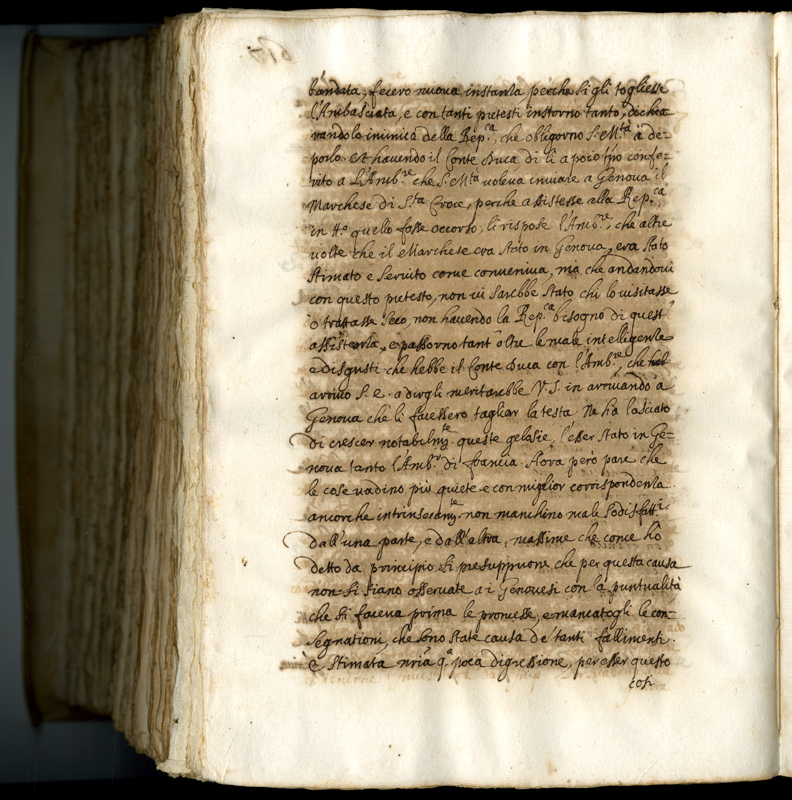 bandata, fecero nuova instanza perche si gli togliesse
l'Ambasciata, e con tanti pretesti instorno tanto, dichia-
randolo inimico della Rep.ca, che obligorno S. M.tà à de-
porlo. et havendo il Conte Duca di lì a poco confe-
rito a l'Amb.re che S. M.tà voleva inviare a Genova il
Marchese di S.ta Croce, perche assistesse alla Rep.ca,
in quello fosse occorso, li rispose l'Amb.re, che altre
volte che il Marchese era stato in Genova, era stato
stimato e servito come conveniva, mà che andandovi
con questo pretesto, non vi sarebbe stato chi lo visitasse
o trattasse seco, non havendo la Rep.ca bisogno di quest'
assistenza, e passorno tant'oltre le male intelligenze
e disgusti che hebbe il Conte Duca con l'Amb.re, che
arrivò S. E. a dirgli meritarebbe V. S. in arrivando à
Genova che li facessero tagliar la testa. Ne hà lasciato
di crescer notabilm.te queste gelosie, l'esser stato in Ge-
nova tanto l'Amb.re di francia. Hora però pare che
le cose vadino più quiete e con miglior corrispondenza
ancorche intrinsecam.te non manchino male sodisfatt.i
dall'una parte, e dall'altra, massime che come hò
detto da principio si presuppuone che per questa causa
non si siano osservate a i Genovesi con la puntualità
che si faceva prima le promesse, e mancatogli le con-
segnationi, che sono state causa de' tanti fallimenti.
È stimata q.a poca digressione, per esser questo
cosi